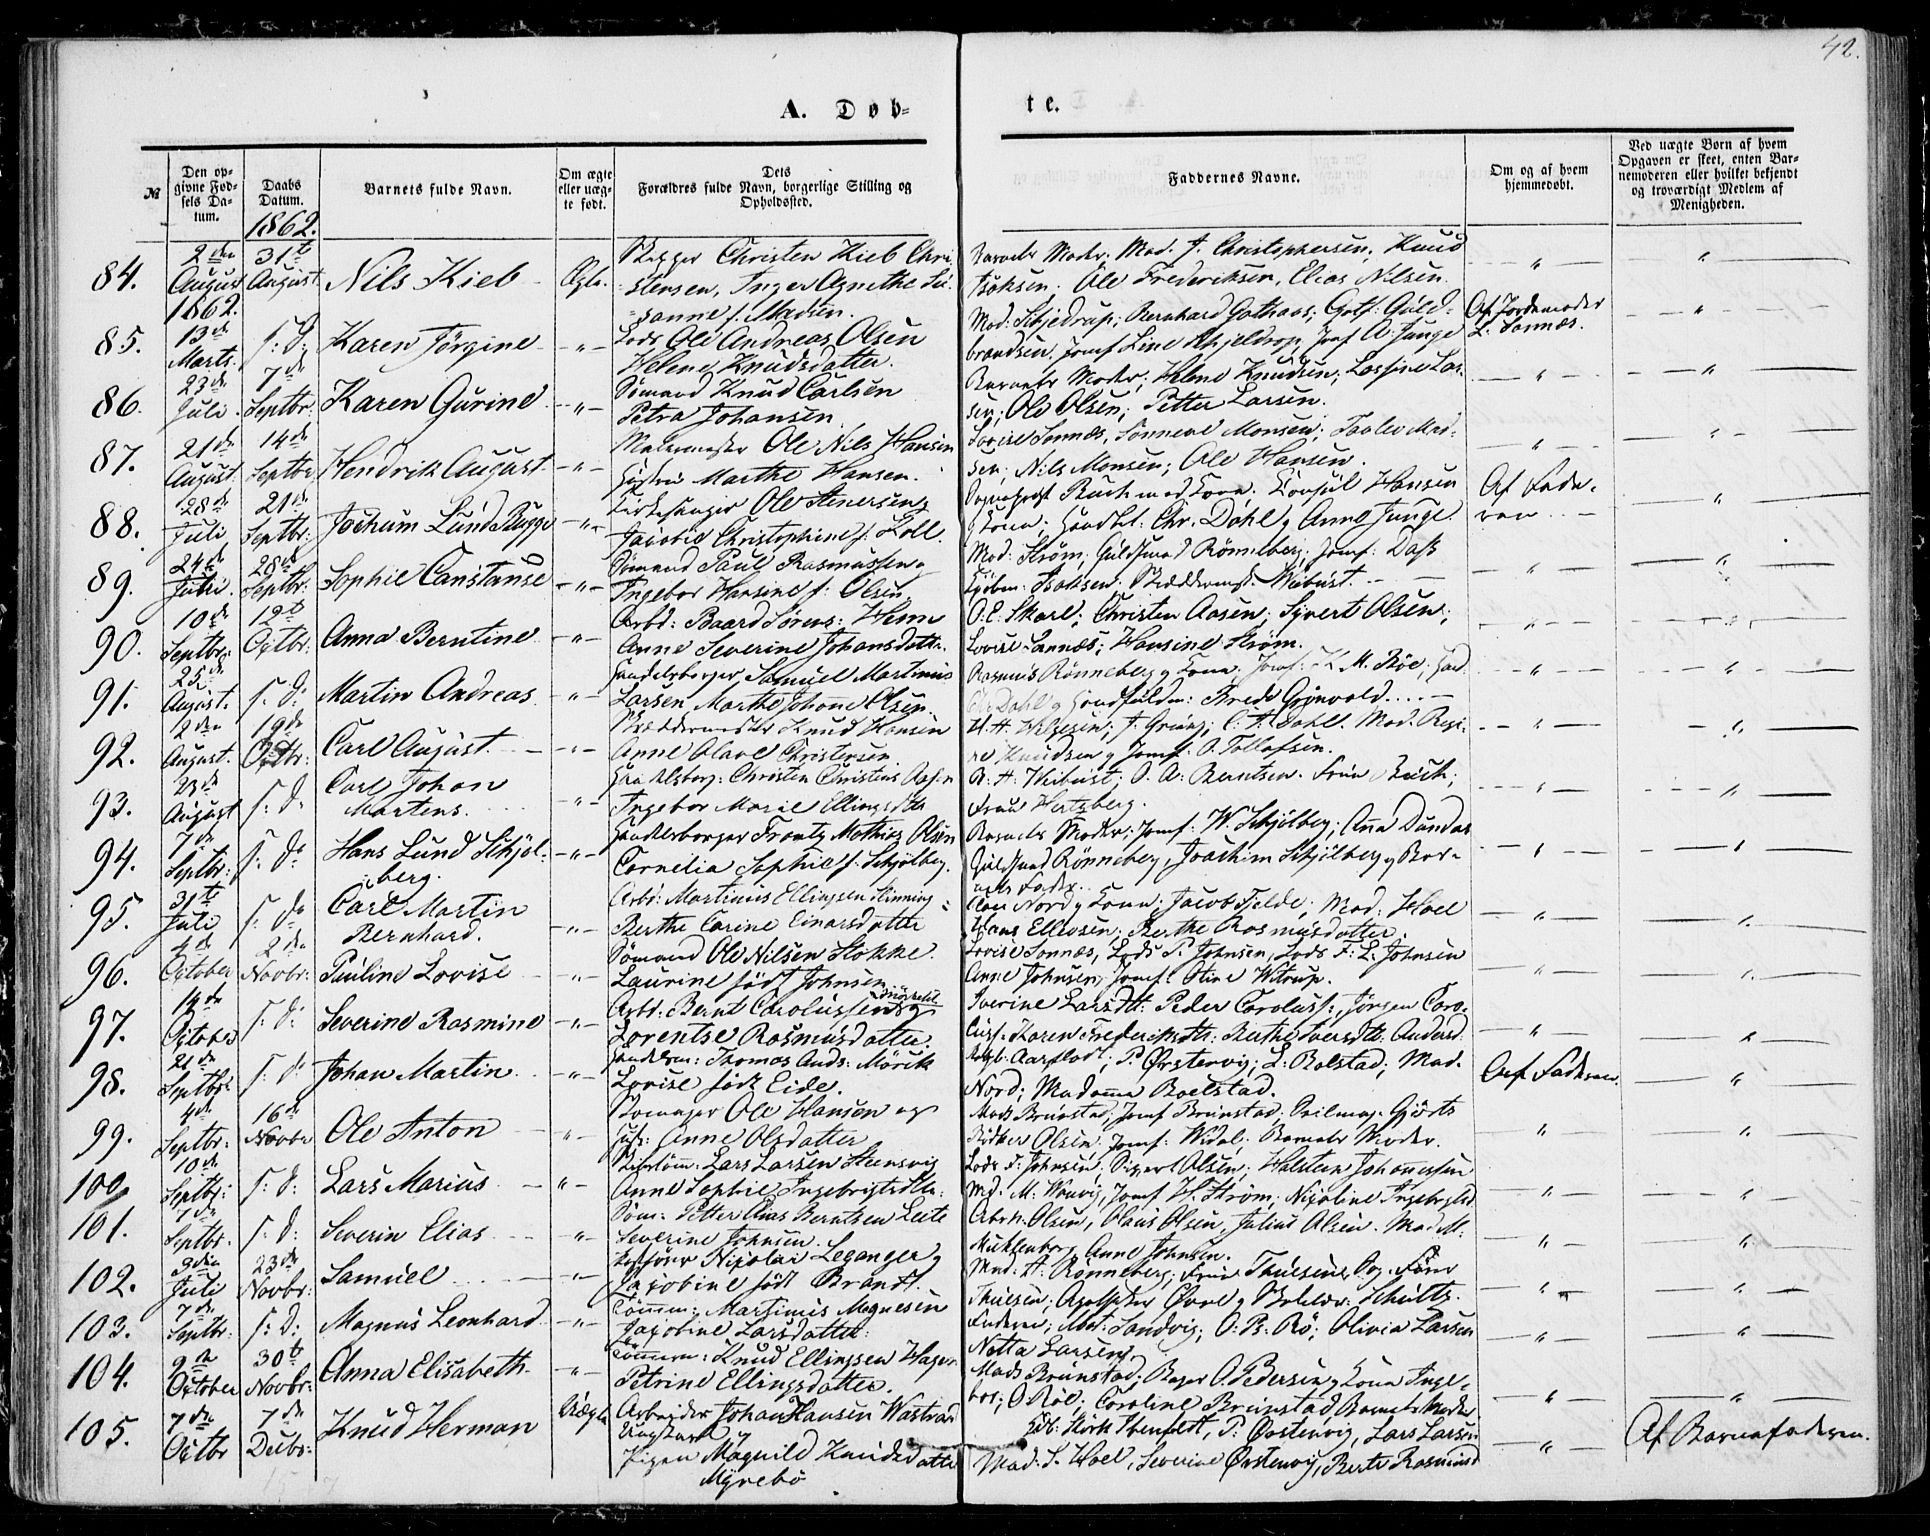 42.
A. Döb-
te.
№
Den op-
givne Fød-
sels Da-
tum.
Daabs
Datum.
1862.
Barnets fulde Navn.
Om ægte
eller uæg-
te født.
Dets
Forældres fulde Navn, borgerlige Stilling og
Opholdssted.
Faddernes Navne.
Om og af hvem
hjemmedøbt.
Ved uægte Børn af hvem
Opgaven er skeet, enten Bar-
nemoderen eller hvilket bekjendt
og troværdigt Medlem af
Menigheden.
84.
2den
August
1862.
31te
August
Nils Kieb
Ægte.
Christen Kieb Chri-
stensen, Inger Agnethe Su-
sanne f. Madsen.
Barnets Moder, Mad. J. Christophersen; Knud
Isaksen; Ole Frederiksen, Elias Nilsen
85.
13de
Marts.
s: d:
Karen Jörgine
Lods Ole Andreas Olsen
Helene Knudsdatter.
Mad: Schjedrup; Bernhard Gothaas; Gotf: Guld-
brandsen, Jomf Line Schjeldrop, Jomf A. Junge
Af Jordemoder
L. Sonnæs.
86.
23de
Juli
7de
Septbr:
Karen Gurine
Sömand Knud Carlsen
Petra Johansen
Barnets Moder; Helene Knudsen; Lassine Lar-
sen; Ole Olsen; Petter Larsen.
87.
21de
August
14de
Septbr
Hendrik August
Malermester Ole Nils Hansen
Hustru Marthe Hansen.
Lovise Sonnæs, Sonneve Monsen; Taale Mad-
sen; Nils Monsen; Ole Hansen.
88.
28de
Juli
21de
Septbr:
Jochum Lund Bugge
Kirkesanger Ole Stenersen
Jacobie Christophine f: Koll.
Sogneprest Buch med Kone; Konsul Hansen
g Kone: Handbet: Chr. Dahl g Anne Junge.
Af Fade-
ren
89.
24de
Juli.
28de
Septbr:
Sophie Canstanse
Sömand Paul Rasmussen
Ingebor Hansine f: Olsen.
Mad: Ström; Guldsmed Rönneberg; Jomf: Dass
Kjöbm: Isaksen: Skræddermest: Wiibust.
90.
10de
Septbr:
12te
Octbr:
Anna Berntine
Arbd: Baard Sörens: Henne
Anne Severine Johansdatte.
O. E. Skarl; Christen Aasen; Syvert Olsen;
Lovise Sonnæs; Hansine Ström.
91.
25de
August.
s: d:
Martin Andreas
Handelsborger Samuel Martinus
Larsen Marthe Johane Olsen
Rasmus Rönneberg g Kone; Jomf: K. M. Röe;
Chr Dahl g Handfuldm: Brede Grönvold.
92.
2den
August.
19de
Octbr:
Carl August
Skræddermester Knud Hansen
Anne Olave Christensen
H. H. Welgesen; C. A. Dahl. Mad. Regi-
ne Knudsen g Jomf: O. Tollofsen.
93.
23de
August
s: d:
Carl Johan
Martens.
Handelsborg: Christen Christius Aasen
Ingebor Marie Ellingsdtr
A. H. Wiibust; O. A: Berntsen. Frue Buch;
Frue Hertzberg.
94.
7de
Septbr:
s: d:
Hans Lund Schjöl-
berg.
Handelsborger Frantz Mathias Olsen
Cornelia Sophie f: Schjölberg.
Barnets Moder; Jomf: W. Schjölberg; Ana Dundas
Guldsmed Rönneberg, Joachim Schjölberg g Bar-
nets Fader.
95.
31te
Juli
s: d:
Carl Martin
Bernhard.
Arbd: Martinus Ellingsen Slinning
Berthe Carine Einarsdatter
Nord g Kone; Jacob Fjelde; Mad: Hoel
Hans Elliasen; Berthe Rasmusdatter.
96.
4de
October
2den
Novbr:
Pauline Lovise
Sömand Ole Nilsen Stokke.
Laurine född Johnsen
Lovise Sonnæs, Lods P. Johnsen, Lods F. L. Johnsen
Anne Johnsen, Jomf. Stine Witrup.
97.
19de
October
s: d:
Severine Rasmine
Arbd: Bernt Carolussen g
Lorentse Rasmusdatter.
Iverine Larsdtr. Peder Carolusf:; Jörgen Caro-
lusf. Karen Frederiksdtr. Berthe Iversdtr. Anders
98.
21de
Septbr:
s: d:
Johan Martin
Handelsm: Thomas Ands: Mörck
Lovise född Eide.
Aarflodt; P. Örstenvig; L. Bolstad; Mad.
Nord; Madame Boelstad.
Af Faderen
99.
4de
Septbr:
16de
Novbr
Ole Anton
Skomager Ole Hansen og
Hust: Anne Olsdatter
Mads Brunstad; Jomf Brunstad; Seilmag. Gjörts
Bödker Olsen, Jomf: Widal; Barnets Moder.
100.
10de
Septbr:
s: d:
Lars Marius
Skibstömm: Lars Larsen Steensvig
Anne Sophie Ingebrigtsdtr:
Lods J: Johnsen; Sivert Olsen; Halstein Johannessen
Md. M: Wenvig, Jomf H. Ström; Nicoline Ingebrigtsd
101.
7de
Septbr.
s: d:
Severin Elias
Söm: Petter Elias Berntsen Leite
Severine Johnsen.
Olsen, Olaus Olsen, Julius Olsen. Mad M.
Muhlenborg Anne Johnsen.
102.
3die
Juli
23de
Novbr:
Samuel
Nicolai Leganger g
Jacobine född Brandt.
Mad: H. Rönneberg; Frue Thuesen, Sog. Förer
Thuesen; Apotheker Övre g Schultz.
103.
7de
Septbr:
s: d:
Magnus Leonhard
Tömmrm: Martinus Magnesen
Jacobine Larsdatter.
Faderen; Mat: Landvig; O: Ps: Rö; Olivia Larsen
Netta Larsen.
104.
9de
October
30te
Novbr:
Anna Elisabeth
Tömmerm: Knud Ellingsen Hagen
Petrine Ellingsdatter.
Mads Brunstad; Bager O. Pedersen g Kone Inge-
bor; O Röe; Caroline Brunstad Barnets Moder
105.
7de
Octbr
7de
Decbr:
Knud Herman
Uægte
Arbeider Johan Hansen Wastrand
Ungkarl g
Pigen Magnild Knudsdatter
Myrebö
Störk Ibenfeldt, P. Örstenvig, Lars Larsen
Mad. S. Hoel, Severine Örstenvig, Berte Rasmusd
Af Barnefaderen.